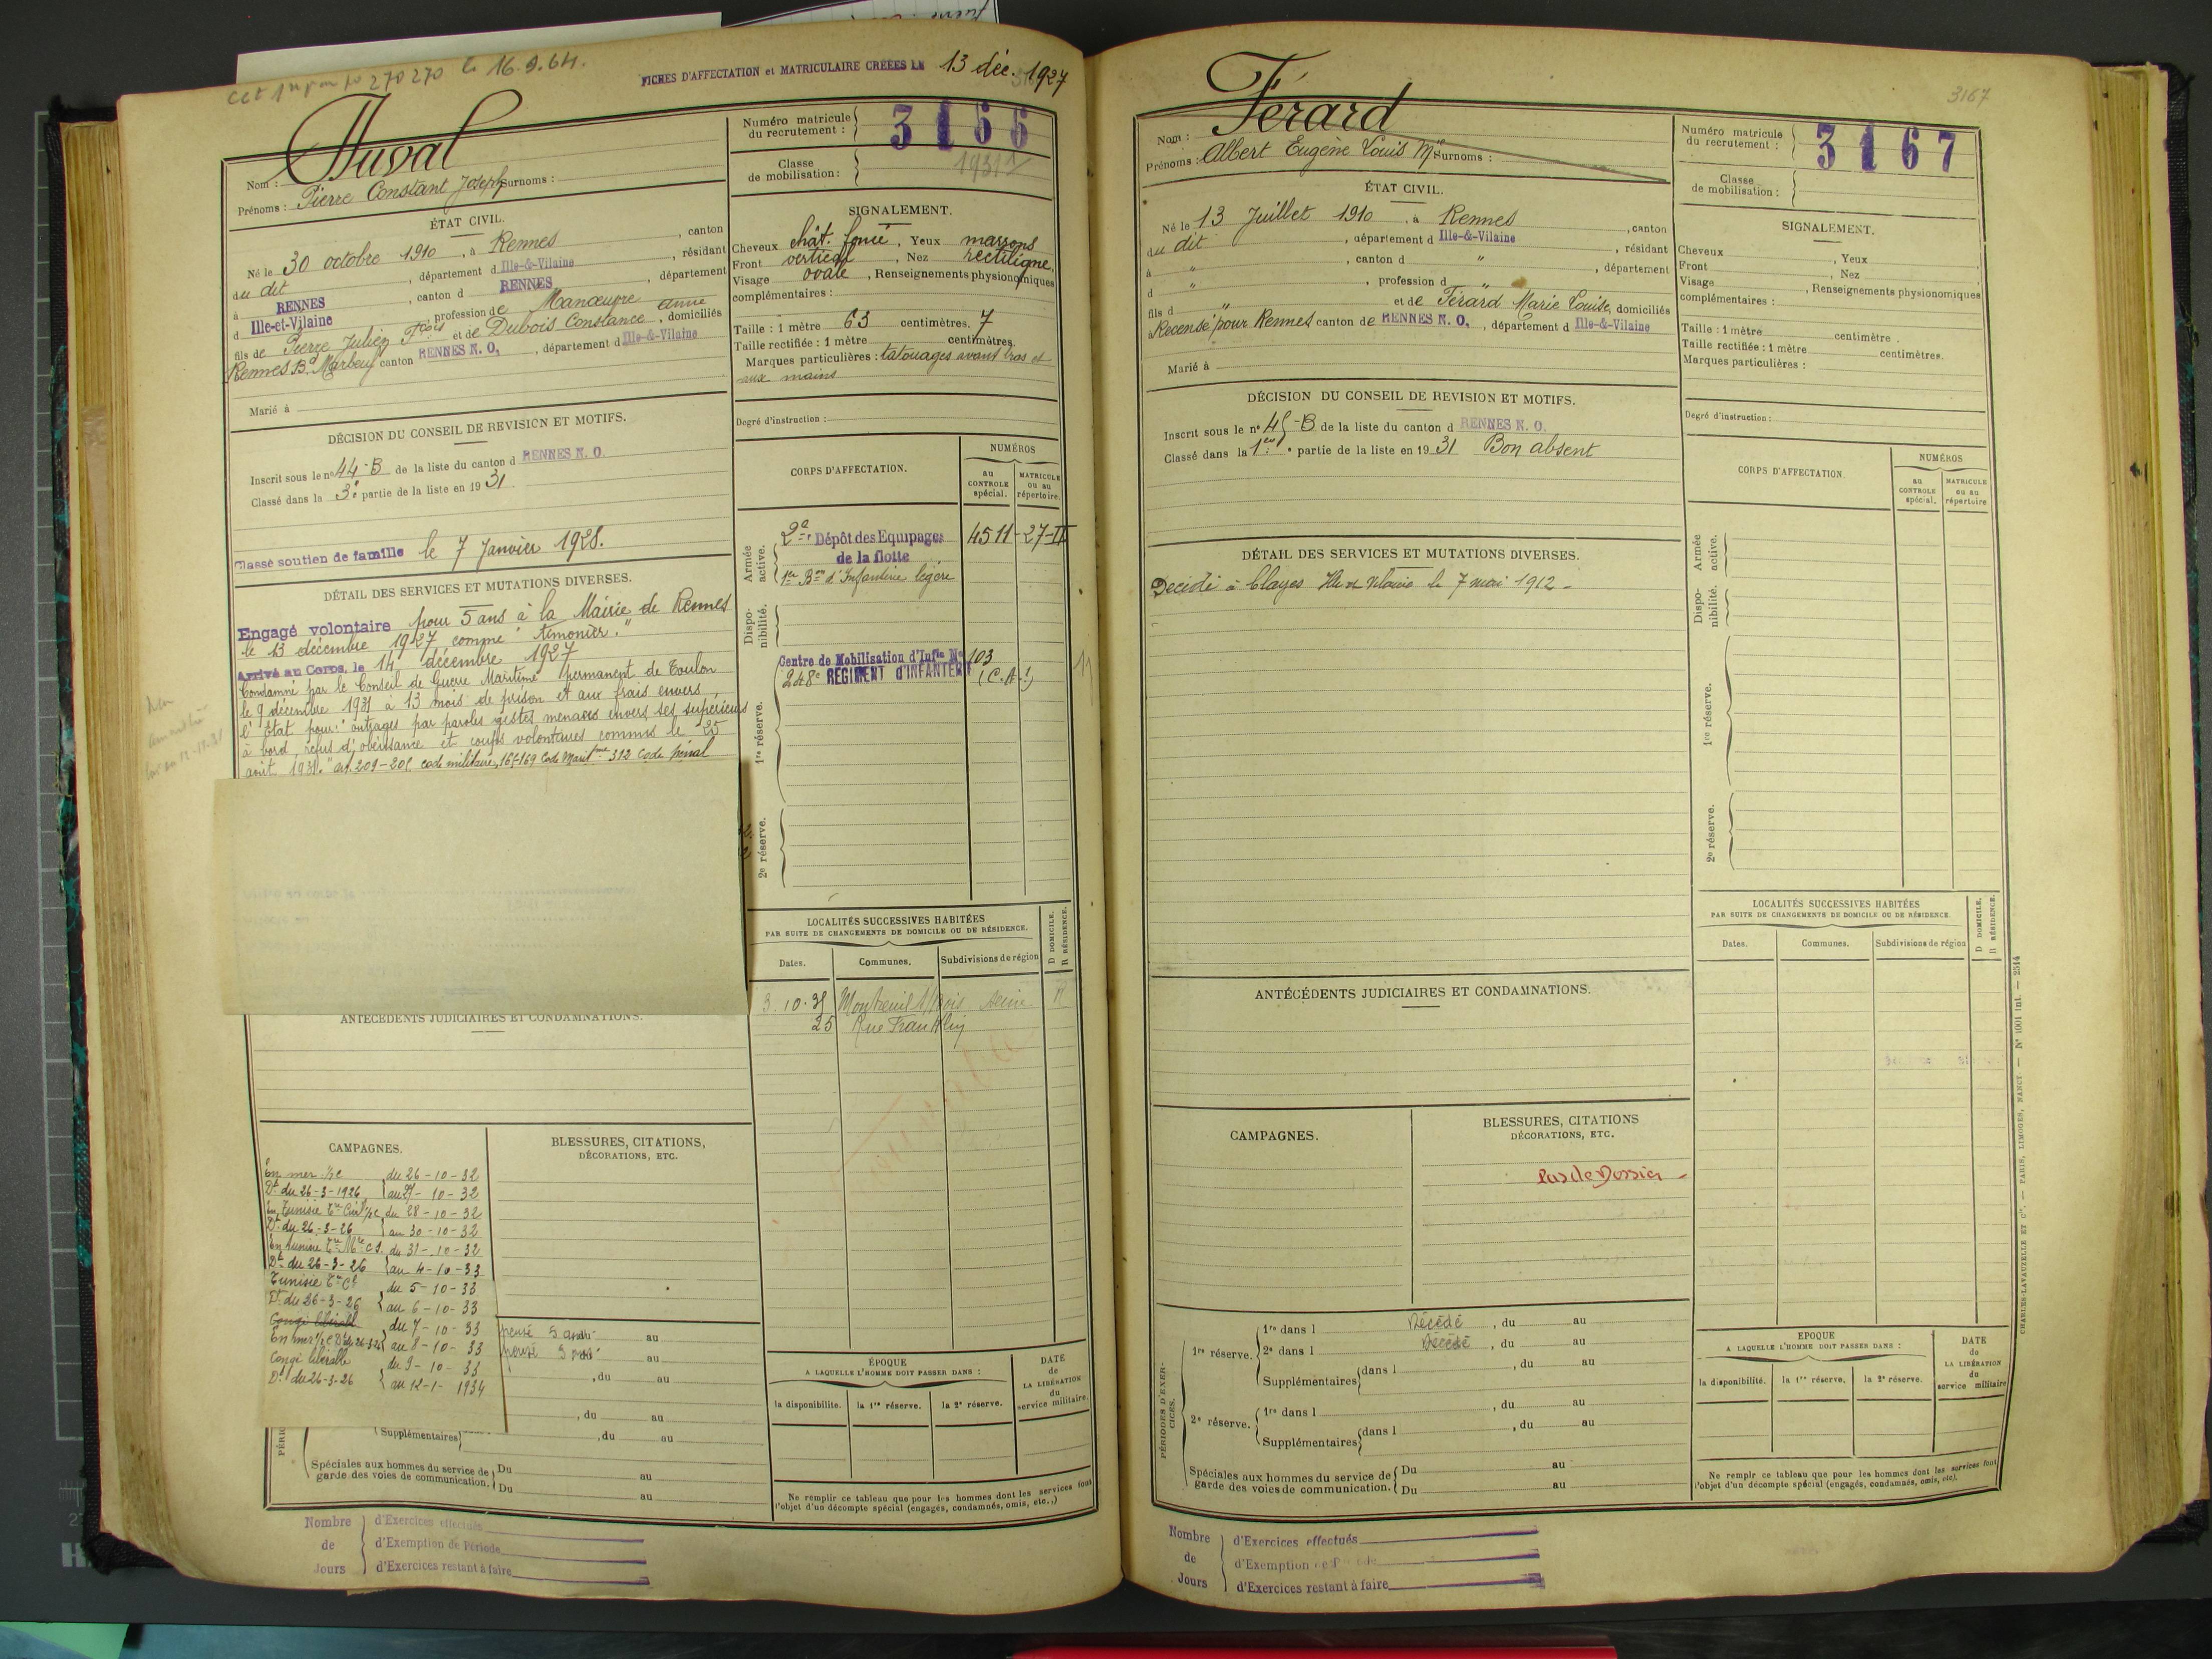 Cct 1re par jo 270 270 le 16.9.64.
FICHES D'AFFECTATION et MATRICULAIRE CRÉÉES LE 13 déc. 1927
Nom : Duval
Prénoms : Pierre Constant Joseph Surnoms :
Numéro matricule du recrutement : 3166
Classe de mobilisation : 1931
ÉTAT CIVIL.
Né le 30 octobre 1910, à Rennes, canton
du dit, département d Ille-&-Vilaine, résidant
à RENNES, canton d RENNES, département
d Ille-et-Vilaine, profession de Manœuvre
fils de Pierre Julien Fçois et de Dubois Constance Anne, domiciliés
Rennes B. Marbeuf canton RENNES N. O., département d Ille-&-Vilaine
Marié à
SIGNALEMENT.
Cheveux chât. foncé, Yeux marrons
Front vertical, Nez rectiligne.
Visage ovale, Renseignements physionomiques
complémentaires :
Taille : 1 mètre 63 centimètres. 7
Taille rectifiée : 1 mètre centimètres.
Marques particulières : tatouages avant bras et
aux mains
Degré d'instruction :
DÉCISION DU CONSEIL DE REVISION ET MOTIFS.
Inscrit sous le n° 44-B de la liste du canton d RENNES N. O.
Classé dans la 3e partie de la liste en 1931.
Classé soutien de famille le 7 Janvier 1928.
CORPS D'AFFECTATION.
NUMÉROS
au CONTROLE spécial.
MATRICULE ou au répertoire.
Armée active.
2e Dépôt des Equipages 4511-27-II
de la flotte
1er Bon d'Infanterie légère
Disponibilité.
1re réserve.
Centre de Mobilisation d'Infie N° 103
248e RÉGIMENT D'INFANTERIE (C.A.1)
11
2e réserve.
DÉTAIL DES SERVICES ET MUTATIONS DIVERSES.
Engagé volontaire pour 5 ans à la Mairie de Rennes
le 13 décembre 1927 comme "timonier."
Arrivé au Corps, le 14 décembre 1927
Condamné par le Conseil de Guerre Maritime permanent de Toulon
le 9 décembre 1931 à 13 mois de prison et aux frais envers
l'Etat pour: "outrages par paroles gestes menaces envers ses supérieurs
à bord, refus d'obéissance et coups volontaires commis le 25
août 1931." art. 209-205 code militaire, 165-169 Code Maritme 312 Code pénal
LOCALITÉS SUCCESSIVES HABITÉES
PAR SUITE DE CHANGEMENTS DE DOMICILE OU DE RÉSIDENCE.
Dates. Communes. Subdivisions de région
D DOMICILE. R RÉSIDENCE.
3.10.35 Montreuil s/Bois Seine R
25 Rue Franklin
ANTÉCÉDENTS JUDICIAIRES ET CONDAMNATIONS.
CAMPAGNES.
En mer ½ c du 26-10-32
Dt du 26-3-1926 au 27-10-32
En Tunisie Tre Civil ½ c du 28-10-32
Dt du 26-3-26 au 30-10-32
En Tunisie Tre Mre c s. du 31-10-32
Dt du 26-3-26 au 4-10-33
Tunisie Tre Cl du 5-10-33
Dt du 26-3-26 au 6-10-33
Congé libérable
du 7-10-33
En mer ½ c Dt du 26-3-26 au 8-10-33
Congé libérable du 9-10-33
Dt du 26-3-26 au 12-1-1934
BLESSURES, CITATIONS,
DÉCORATIONS, ETC.
au
au
, du au
, du au
Supplémentaires , du au
Spéciales aux hommes du service de garde des voies de communication. Du au
Du au
ÉPOQUE
A LAQUELLE L'HOMME DOIT PASSER DANS :
la disponibilité. la 1re réserve. la 2e réserve.
DATE de LA LIBÉRATION du service militaire.
Ne remplir ce tableau que pour les hommes dont les services font
l'objet d'un décompte spécial (engagés, condamnés, omis, etc.,)
Nombre de Jours
d'Exercices effectués
d'Exemption de Période
d'Exercices restant à faire
3167
Nom : Férard
Prénoms : Albert Eugène Louis Mie Surnoms :
Numéro matricule du recrutement : 3167
Classe de mobilisation :
ÉTAT CIVIL.
Né le 13 Juillet 1910, à Rennes, canton
du dit, département d Ille-&-Vilaine, résidant
à ", canton d ", département
d ", profession d "
fils d " et de Férard Marie Louise, domiciliés
Recensé pour Rennes canton de RENNES N. O., département d Ille-&-Vilaine
Marié à
SIGNALEMENT.
Cheveux, Yeux
Front, Nez
Visage, Renseignements physionomiques
complémentaires :
Taille : 1 mètre centimètre.
Taille rectifiée : 1 mètre centimètres.
Marques particulières :
Degré d'instruction :
DÉCISION DU CONSEIL DE REVISION ET MOTIFS.
Inscrit sous le n° 45-B de la liste du canton d RENNES N. O.
Classé dans la 1ère partie de la liste en 1931 Bon absent
CORPS D'AFFECTATION.
NUMÉROS
au CONTROLE spécial.
MATRICULE ou au répertoire
Armée active.
Disponibilité.
1re réserve.
2e réserve.
DÉTAIL DES SERVICES ET MUTATIONS DIVERSES.
Décédé à Clayes Ille et Vilaine le 7 mai 1912 -
LOCALITÉS SUCCESSIVES HABITÉES
PAR SUITE DE CHANGEMENTS DE DOMICILE OU DE RÉSIDENCE.
Dates. Communes. Subdivisions de région
D DOMICILE. R RÉSIDENCE.
ANTÉCÉDENTS JUDICIAIRES ET CONDAMNATIONS.
CAMPAGNES.
BLESSURES, CITATIONS
DÉCORATIONS, ETC.
Pas de Dossier -
PÉRIODES D'EXERCICES.
1re réserve. 1re dans l Décédé, du au
2e dans l Décédé, du au
Supplémentaires dans l , du au
2e réserve. 1re dans l , du au
Supplémentaires dans l , du au
Spéciales aux hommes du service de garde des voies de communication. Du au
Du au
EPOQUE
A LAQUELLE L'HOMME DOIT PASSER DANS :
la disponibilité. la 1re réserve. la 2e réserve.
DATE de LA LIBÉRATION du service militaire
Ne remplr ce tableau que pour les hommes dont les services font
l'objet d'un décompte spécial (engagés, condamnés, omis, etc).
CHARLES-LAVAUZELLE ET Cie. — PARIS, LIMOGES, NANCY — N° 1001 int. — 2514
Nombre de Jours
d'Exercices effectués
d'Exemption de Période
d'Exercices restant à faire